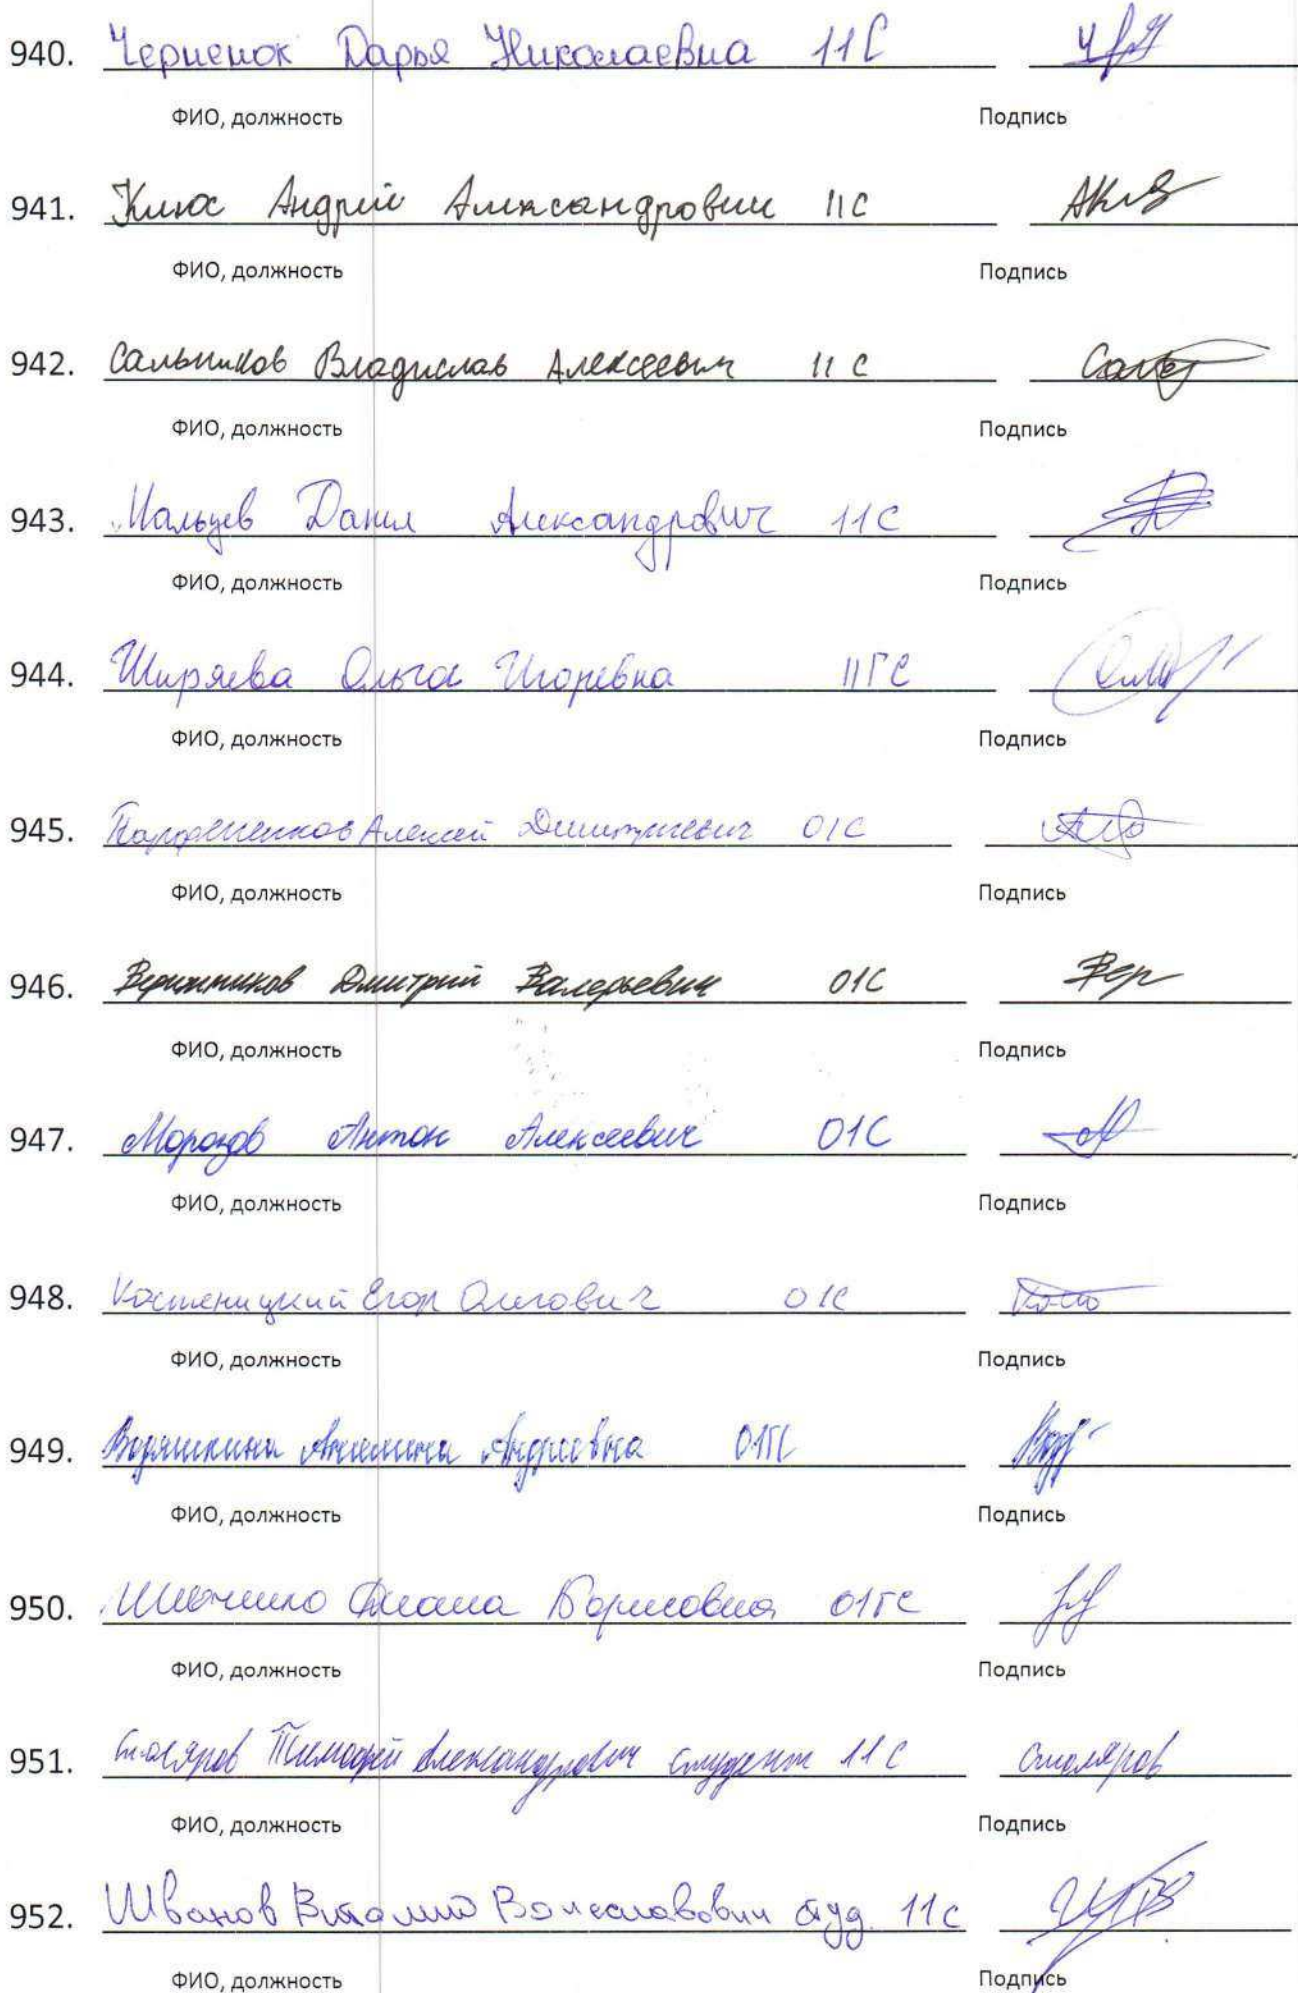 940. Черненок Дарья Николаевна 11С
ФИО, должность Подпись
941. Клюс Андрей Александрович 11С
ФИО, должность Подпись
942. Сальников Владислав Алексеевич 11 С
ФИО, должность Подпись
943. Мальцев Данил Александрович 11С
ФИО, должность Подпись
944. Ширяева Ольга Игоревна 11ГС
ФИО, должность Подпись
945. Алексей Дмитриевич 01С
ФИО, должность Подпись
946. Дмитрий Валерьевич 01С Вер
ФИО, должность Подпись
947. Морозов Антон Алексеевич 01С
ФИО, должность Подпись
948. Костеницкий Егор Олегович 01С
ФИО, должность Подпись
949. Андреевна 01ГС
ФИО, должность Подпись
950. Диана Борисовна 01ГС
ФИО, должность Подпись
951. Столяров Тимофей Александрович студент 11 С Столяров
ФИО, должность Подпись
952. Виталий студ. 11с
ФИО, должность Подпись